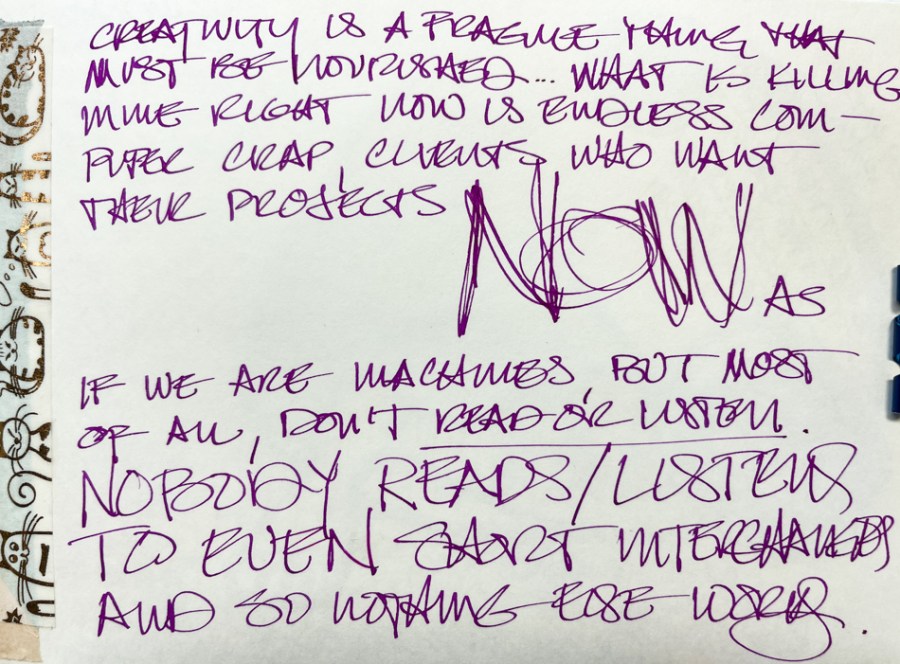 CREATIVITY IS A FRAGILE THING THAT
MUST BE NOURISHED... WHAT IS KILLING
MINE RIGHT NOW IS ENDLESS COM-
PUTER CRAP, CLIENTS WHO WANT
THEIR PROJECTS
NOW AS
IF WE ARE MACHINES, BUT MOST
OF ALL, DON'T READ OR LISTEN.
NOBODY READS/LISTENS
TO EVEN START INTERCHANGES
AND SO NOTHING ELSE WORKS.